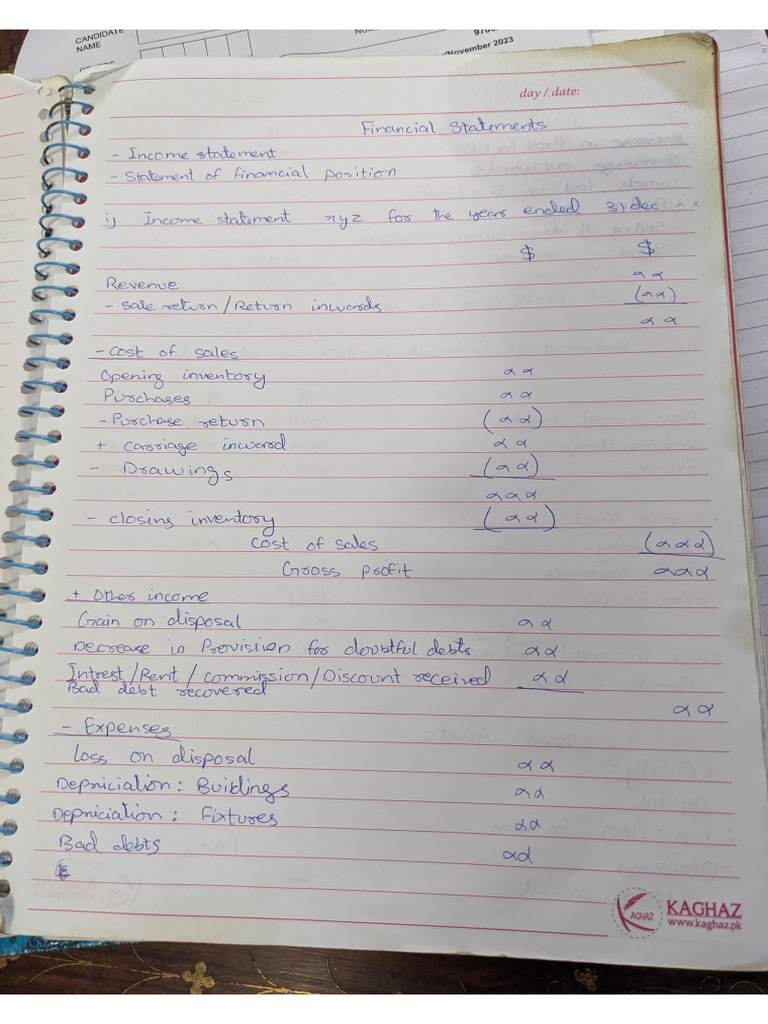 CANDIDATE
NAME
/November 2023
day / date:
Financial Statements
- Income statement
- Statement of financial position
i) Income statement xyz for the years ended 31 dec
$ $
Revenue αα
- Sale return/Return inwards (αα)
αα
- Cost of sales
Opening inventory αα
Purchases αα
- Purchase return (αα)
+ Carriage inward αα
- Drawings (αα)
ααα
- closing inventory (αα)
Cost of sales (ααα)
Gross profit ααα
+ Other income
Gain on disposal αα
Decrease in Provision for doubtful debts αα
Intrest/Rent/commission/Discount received αα
Bad debt recovered
αα
- Expenses
Loss on disposal αα
Depriciation: Buildings αα
Depriciation: Fixtures αα
Bad debts αα
KAGHAZ
KAGHAZ
www.kaghaz.pk